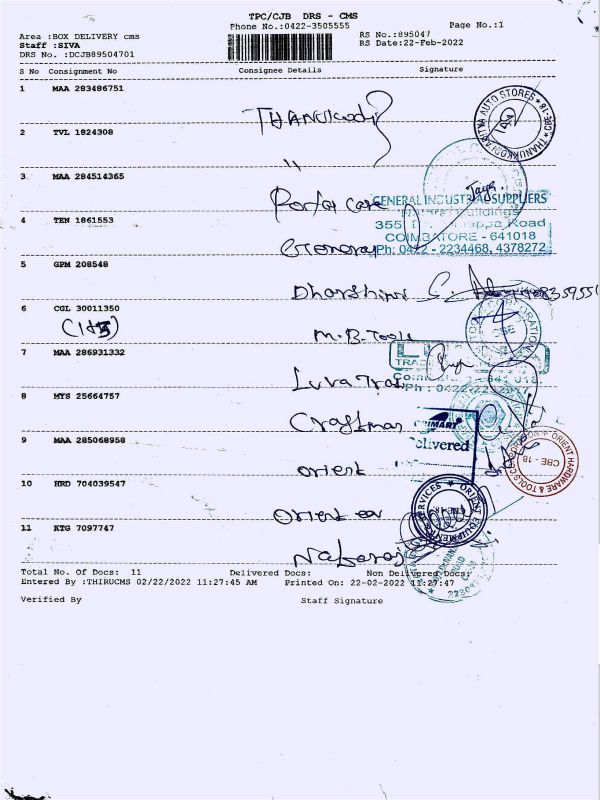 TPC/CJB DRS - CMS
Phone No.:0422-3505555
Page No.:1
Area :BOX DELIVERY cms
RS No.:895047
Staff :SIVA
RS Date:22-Feb-2022
DRS No. :DCJB89504701
S No Consignment No Consignee Details Signature
1 MAA 283486751
THANUKODI
AUTO STORES
2 TVL 1824308
"
3 MAA 284514365
Porter Care
Jaya
GENERAL INDUSTRIAL SUPPLIERS
355 Road
4 TEN 1861553
COIMBATORE - 641018
General
Ph: 0422 - 2234468, 4378272
5 GPM 208548
Dharshini S.
6 CGL 30011350
M.B. Tools
7 MAA 286931332
Luva Trad
8 MYS 25664757
Craftman
9 MAA 285068958
Delivered
Orient
ORIENT HARDWARE & TOOLS
CBE - 18
10 HRD 704039547
Orient
ORIENT EQUIPMENT SERVICES
11 KTG 7097747
Nataraj
Total No. Of Docs: 11 Delivered Docs: Non Delivered Docs:
Entered By :THIRUCMS 02/22/2022 11:27:45 AM Printed On: 22-02-2022 11:27:47
Verified By Staff Signature